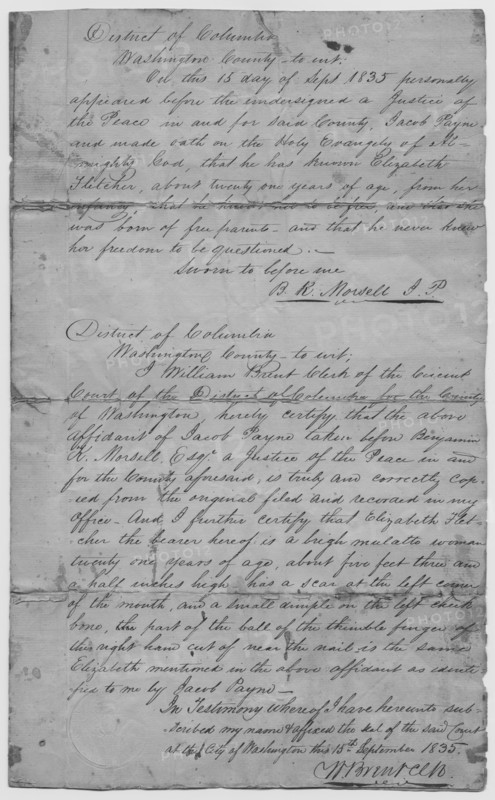 District of Columbia
Washington County - to wit;
On this 15 day of Sept 1835 personally
appeared before the undersigned a Justice of
the Peace in and for said County, Jacob Payne
and made oath on the Holy Evangely of Al-
mighty God, that he has known Elizabeth
Fletcher, about twenty one years of age, from her
infancy that he knows her to be free, and that she
was born of free parents - and that he never knew
her freedom to be questioned. -
Sworn to before me
B. K. Morsell J. P.
District of Columbia
Washington County - to wit;
I William Brent Clerk of the Circuit
Court of the District of Columbia for the County
of Washington, hereby certify that the above
affidavit of Jacob Payne taken before Benjamin
K. Morsell Esqr a Justice of the Peace in and
for the County aforesaid, is truly and correctly cop-
ied from the original filed and recorded in my
Office - And I further certify that Elizabeth Flet-
cher the bearer hereof is a brigh mulatto woman
twenty one years of age, about five feet three and
a half inches high has a scar at the left corner
of the mouth, and a small dimple on the left cheek
bone, the part of the ball of the thimble finger of
the right hand cut of near the nail is the same
Elizabeth mentioned in the above affidavit as identi
fied to me by Jacob Payne -
In Testimony Whereof I have hereunto sub-
scribed my name & affixed the seal of the said Court
at the City of Washington this 15th September 1835.
W Brent Clk.
PHOTO12